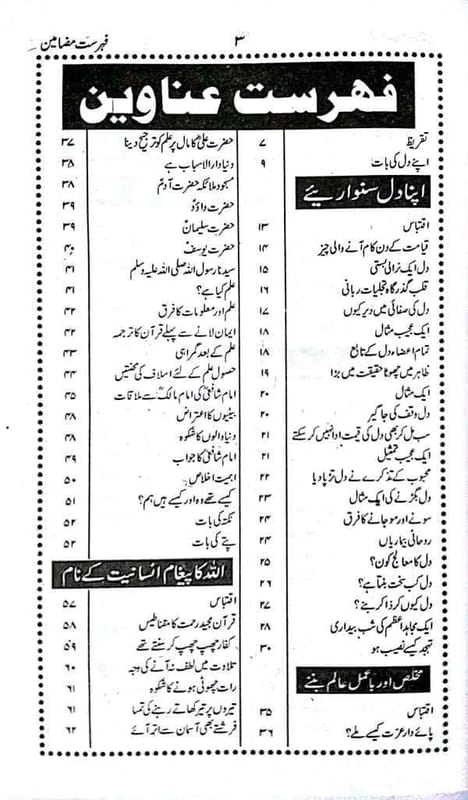 فہرست مضامین
۳
فہرست عناوین
تقریظ ۷
اپنے دل کی بات ۹
اپنا دل سنواریئے
اقتباس ۱۳
قیامت کے دن کام آنے والی چیز ۱۴
دل ایک نرالی بستی ۱۵
قلب گذرگاہ تجلیات ربانی ۱۶
دل کی صفائی میں دیر کیوں ۱۷
ایک عجیب مثال ۱۸
تمام اعضاء دل کے تابع ۱۸
ظاہر میں چھوٹا حقیقت میں بڑا ۱۹
ایک مثال ۲۰
دل وقف کی جاگیر ۲۰
سب مل کر بھی دل کی قیمت ادا نہیں کر سکتے ۲۱
ایک عجیب تمثیل ۲۱
محبوب کے تذکرے نے دل تڑپا دیا ۲۲
دل بگڑنے کی ایک مثال ۲۳
سونے اور مو جانے کا فرق ۲۴
روحانی بیماریاں ۲۴
دل کا معالج کون؟ ۲۵
دل کب سخت بنتا ہے؟ ۲۶
دل کیوں کر ذاکر بنے؟ ۲۷
ایک مجاہد اعظم کی شب بیداری ۲۸
تہجد کیسے نصیب ہو ۳۰
مخلص اور باعمل عالم بنئے
اقتباس ۳۵
پائے دار عزت کیسے ملے؟ ۳۶
حضرت علیؓ کا مال پر علم کو ترجیح دینا ۳۷
دنیا دار الاسباب ہے ۳۸
مسجود ملائکہ حضرت آدمؑ ۳۸
حضرت داؤدؑ ۳۹
حضرت سلیمانؑ ۳۹
حضرت یوسفؑ ۴۰
سیدنا رسول اللہ صلی اللہ علیہ وسلم ۴۱
علم کیا ہے؟ ۴۱
علم اور معلومات کا فرق ۴۲
ایمان لانے سے پہلے قرآن کا ترجمہ ۴۲
علم کے بعد گمراہی ۴۳
حصول علم کے لئے اسلاف کی محنتیں ۴۴
امام شافعیؒ کی امام مالکؒ سے ملاقات ۴۵
بیٹیوں کا اعتراض ۴۸
دنیا والوں کا شکوہ ۴۸
امام شافعیؒ کا جواب ۴۹
اہمیت اخلاص ۵۰
کیسے تھے وہ اور کیسے ہیں ہم؟ ۵۱
نکتہ کی بات ۵۲
پتے کی بات ۵۲
اللہ کا پیغام انسانیت کے نام
اقتباس ۵۷
قرآن مجید رحمت کا مقناطیس ۵۸
کفار چھپ چھپ کر سنتے تھے ۵۹
تلاوت میں لطف نہ آنے کی وجہ ۶۰
رات چھوٹی ہونے کا شکوہ ۶۱
تیروں پر تیر کھاتے رہنے کی تمنا ۶۱
فرشتے بھی آسمان سے اتر آئے ۶۲